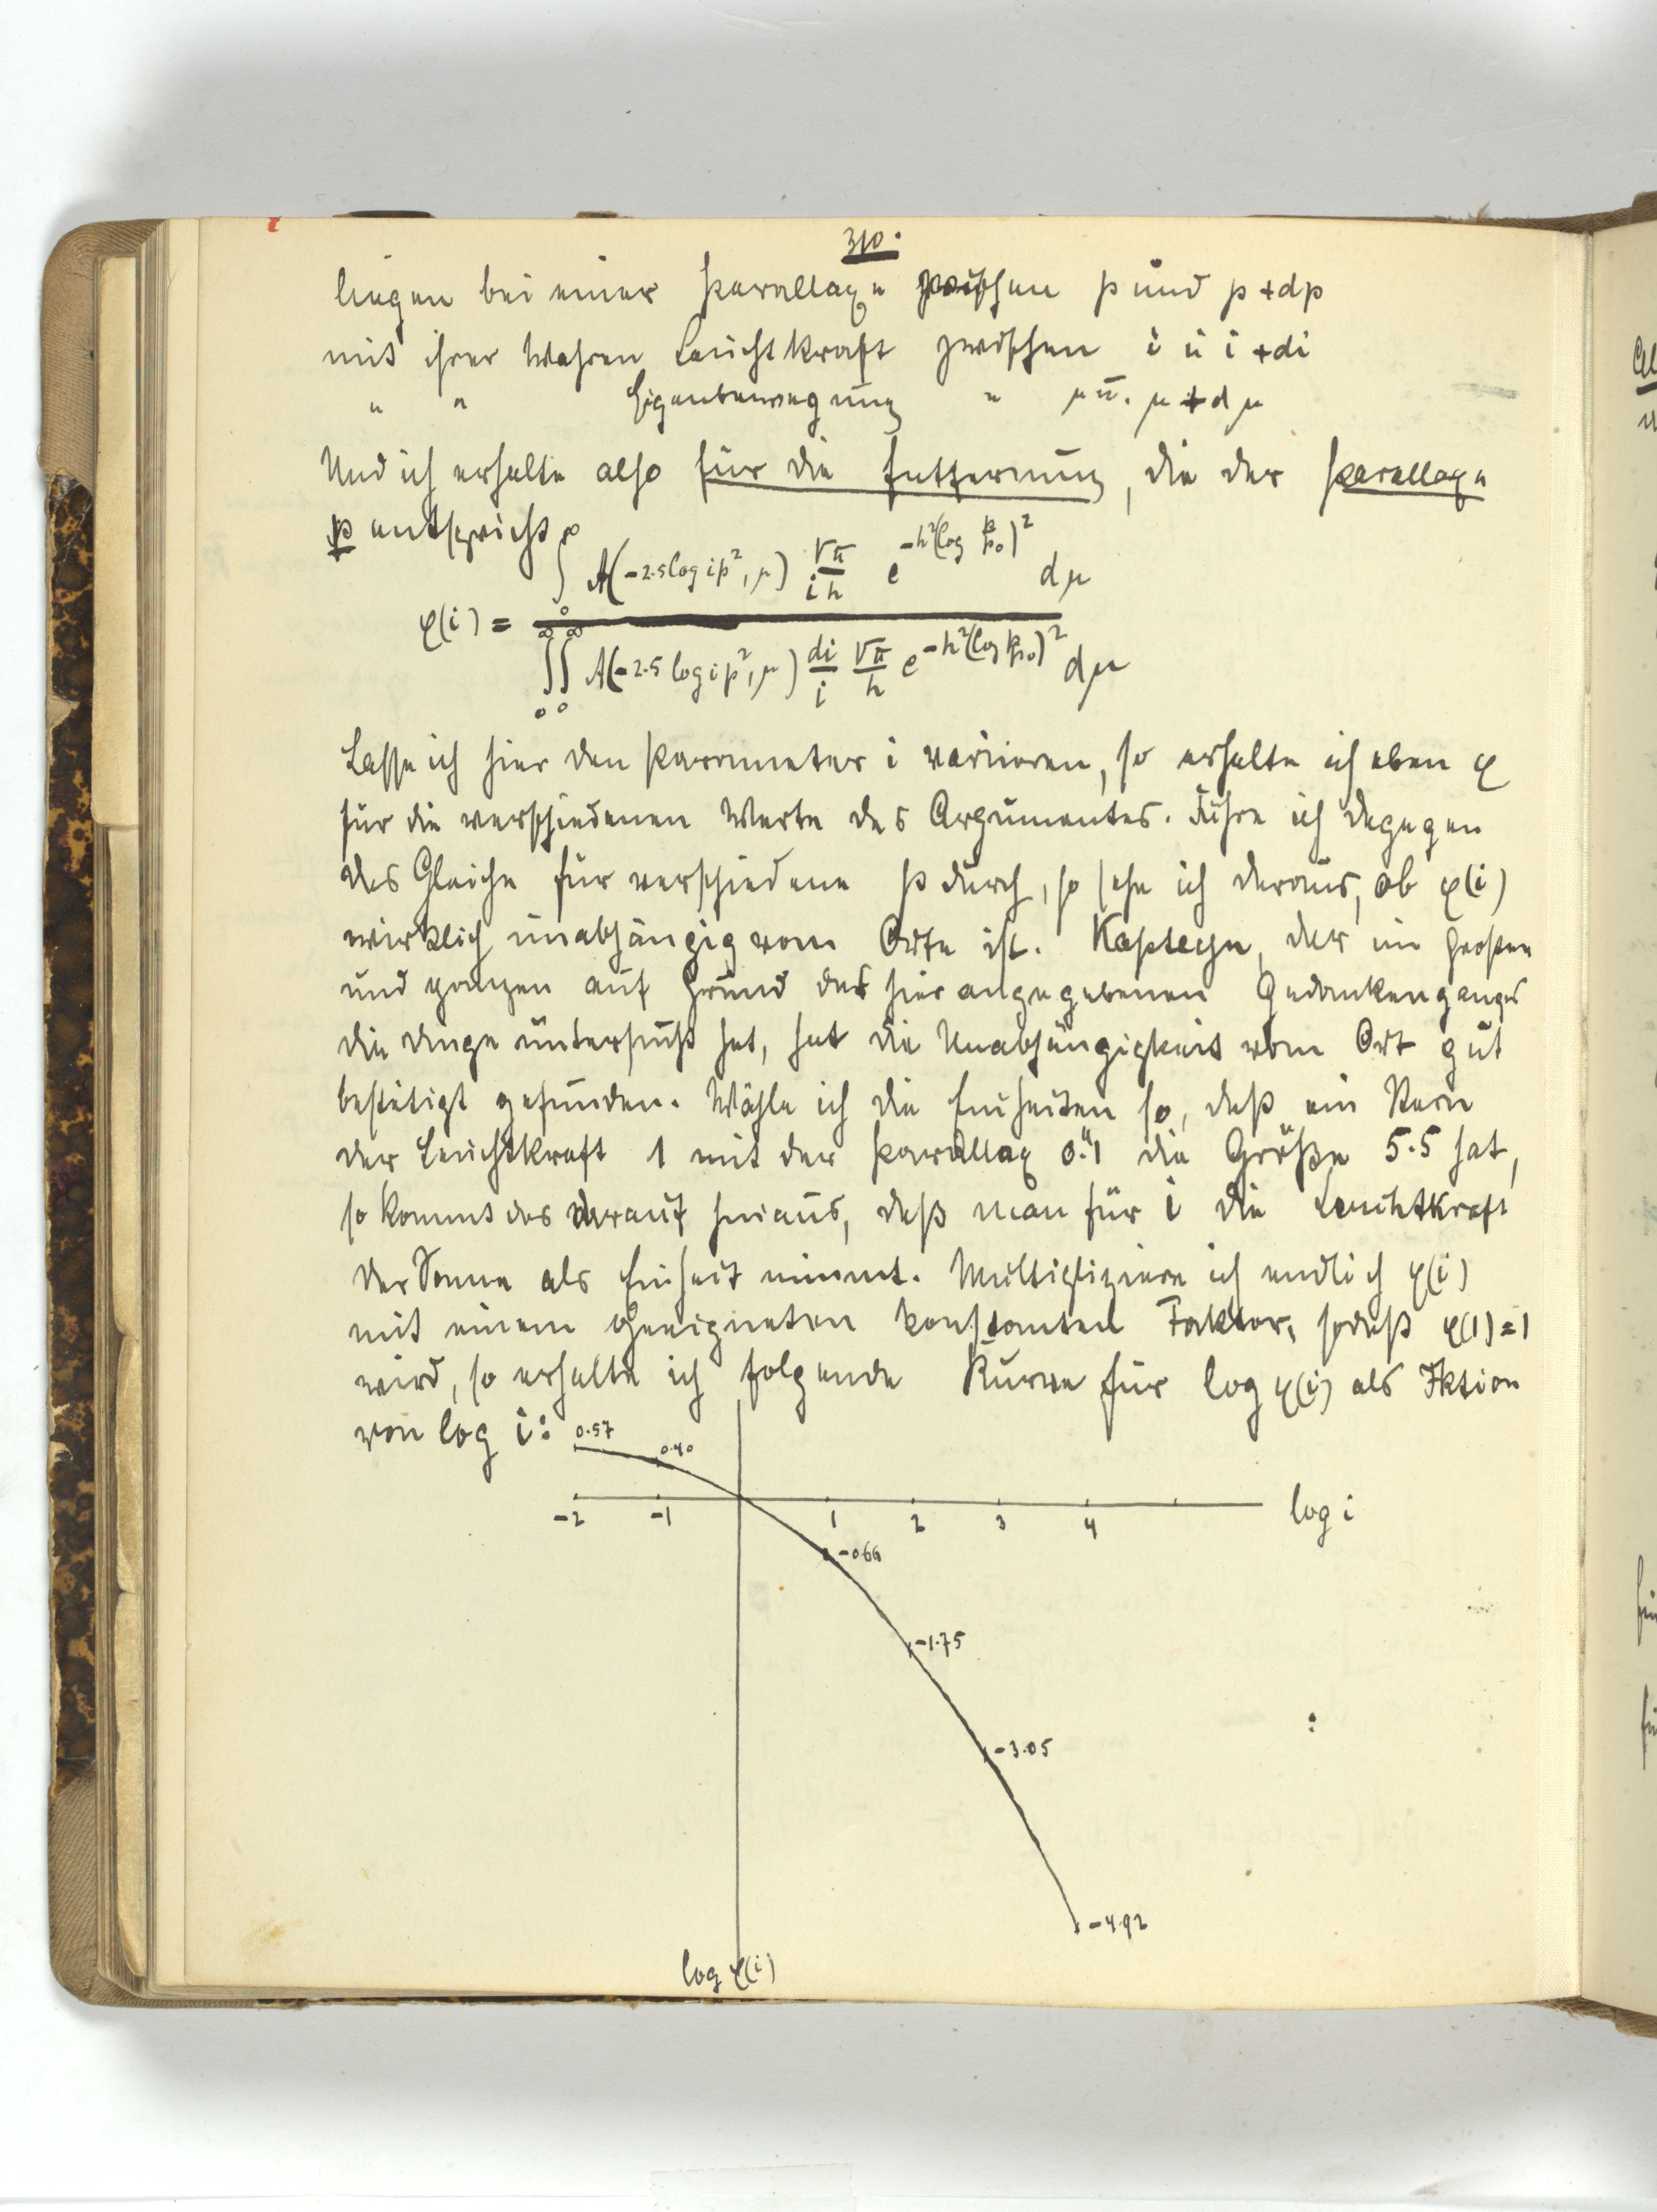 310.
liegen bei einer Parallaxe zwischen p und p + dp
mit ihrer wahren Leuchtkraft zwischen i u i + di
" " Eigenbewegung " μ u. μ + dμ
Und ich erhalte also für die Entfernung, die der Parallaxe
p entspricht
φ(i) = ∫₀^∞ A(-2.5 log ip², μ) √π/ih e^{-h²(log p/p₀)²} dμ
∫₀^∞ ∫₀^∞ A(-2.5 log ip², μ) di/i √π/h e^{-h²(log p/p₀)²} dμ
Lasse ich hier den Parameter i variieren, so erhalte ich eben φ
für die verschiedenen Werte des Argumentes. Führe ich dagegen
das Gleiche für verschiedene p durch, so sehe ich daraus, ob φ(i)
wirklich unabhängig vom Orte ist. Kapteyn, der im Großen
und ganzen auf Grund des hier angegebenen Gedankenganges
die Dinge untersucht hat, hat die Unabhängigkeit vom Ort gut
bestätigt gefunden. Wähle ich die Einheiten so, daß ein Stern
der Leuchtkraft 1 mit der Parallax 0."1 die Größe 5.5 hat,
so kommt das darauf hinaus, daß man für i die Leuchtkraft
der Sonne als Einheit nimmt. Multipliziere ich endlich φ(i)
mit einem geeigneten konstanten Faktor, sodaß φ(1) = 1
wird, so erhalte ich folgende Kurve für log φ(i) als Fktion
von log i:
0.57
0.40
-2 -1 1 2 3 4 log i
-0.66
-1.75
-3.05
-4.92
log φ(i)